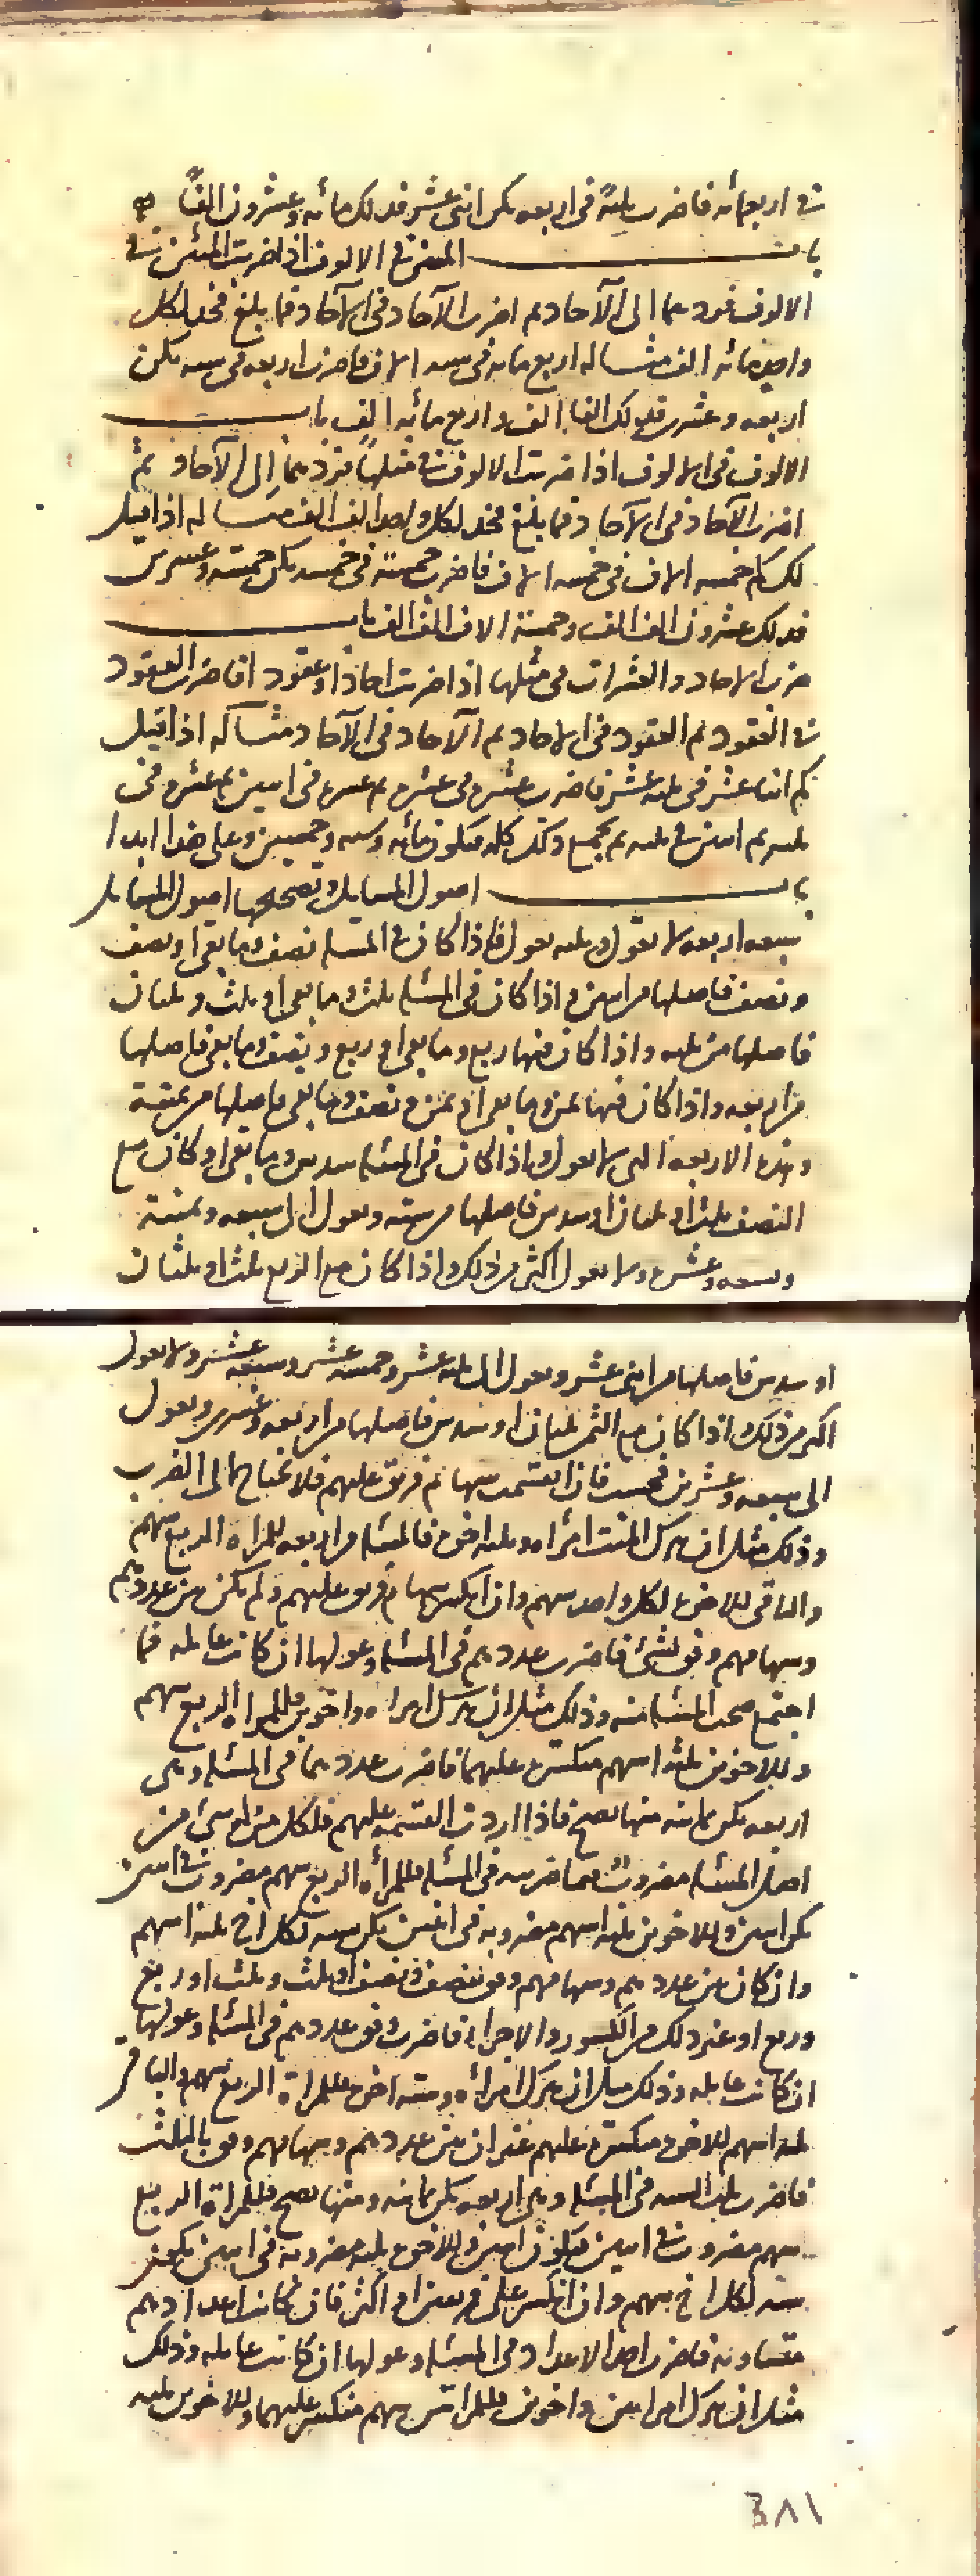 في اربعمائه فاضرب ثلثة في اربعه يكن اثنى عشر فذلك مائه وعشرون الفا
باب المئين في الالوف اذا ضربت المئين في
الالوف فردهما الى الآحاد ثم اضرب الآحاد في الآحاد فما بلغ فخذ لكل
واحد مائه الف مثاله اربع مائه في سته الاف فاضرب اربعه في سته يكن
اربعه وعشرين فذلك الفا الف واربع مائه الف باب
الالوف في الالوف اذا ضربت الالوف في مثلها فردهما الى الآحاد ثم
اضرب الآحاد في الآحاد فما بلغ فخذ لكل واحد الف الف مثاله اذا قيل
لك كم خمسه الاف في خمسه الاف فاضرب خمسة في خمسه يكن خمسة وعشرين
فذلك عشرون الف الف وخمسة الاف الف الف باب
ضرب الاحاد والعشرات في مثلها اذا ضربت احادا وعقود افاضرب العقود
في العقود ثم العقود في الاحاد ثم الآحاد في الآحاد مثاله اذا قيل
كم اثنا عشر في ثلثه عشر فاضرب عشره في عشره ثم عشره في اثنين ثم عشره في
ثلثه ثم اثنين في ثلثه ثم تجمع ذلك كله فيكون مائه وسته وخمسين وعلى هذا ابدا
باب اصول المسايل وتصحيحها اصول المسايل
سبعه اربعه لا تعول وثلثه تعول فاذا كان في المسئله نصف وما بقي او نصف
ونصف فاصلها من اثنين واذا كان في المسئله ثلث وما بقي او ثلث وثلثان
فاصلها من ثلثه واذا كان فيها ربع وما بقي او ربع ونصف وما بقي فاصلها
من اربعه واذا كان فيها ثمن وما بقي او ثمن ونصف وما بقي فاصلها من ثمنية
وهذه الاربعه التي لا تعول واذا كان في المسئله سدس وما بقي او كان مع
النصف ثلث او ثلثان او سدس فاصلها من سته وتعول الى سبعه وثمنية
وتسعه وعشره ولا تعول اكثر من ذلك واذا كان مع الربع ثلث او ثلثان
او سدس فاصلها من اثنى عشر وتعول الى ثلثه عشر وخمسه عشر وسبعه عشر ولا تعول
اكثر من ذلك واذا كان مع الثمن ثلثان او سدس فاصلها من اربعه وعشرين وتعول
الى سبعه وعشرين فحسب فان انقسمت سهام فريق عليهم فلا تحتاج الى الضرب
وذلك مثل ان يترك الميت امراه وثلثه اخوه فالمسئله من اربعه للمراه الربع سهم
والباقي للاخوه لكل واحد سهم وان انكسر سهام فريق عليهم ولم يكن بين عددهم
وسهامهم وفق لشئ فاضرب عددهم في المسئله وعولها ان كانت عايله فما
اجتمع صحت المسئله منه وذلك مثل ان يترك امراه واخوين للمراه الربع سهم
وللاخوين ثلثه اسهم منكسره عليهما فاضرب عددهما في المسئله وهي
اربعه يكن ثمانيه منها تصح فاذا اردت القسمه عليهم فلكل من له شئ من
اصل المسئله مضروب فيما ضربته في المسئله للمرأه الربع سهم مضروب في اثنين
يكن اثنين وللاخوين ثلثه اسهم مضروبه في اثنين يكن سته لكل اخ ثلثه اسهم
وان كان بين عددهم وسهامهم وفق بنصف ونصف او بثلث وثلث او ربع
وربع او غير ذلك من الكسور والاجزاء فاضرب وفق عددهم في المسئله وعولها
ان كانت عايله وذلك مثل ان يترك امرأه وسته اخوه للمراة الربع سهم والباقي
ثلثه اسهم للاخوه منكسره عليهم غير ان بين عددهم وسهامهم وفق بالثلث
فاضرب ثلث السته في المسئله وهي اربعه يكن ثمانيه ومنها تصح للمراة الربع
سهم مضروب في اثنين فيكون اثنين وللاخوه ثلثه مضروبه في اثنين يكون
سته لكل اخ سهم وان انكسر على فريقين او اكثر فان كانت اعدادهم
متساويه فاضرب احد الاعداد في المسئله وعولها ان كانت عايله وذلك
مثل ان يترك امراتين واخوين للمراتين سهم منكسر عليهما وللاخوين ثلثه